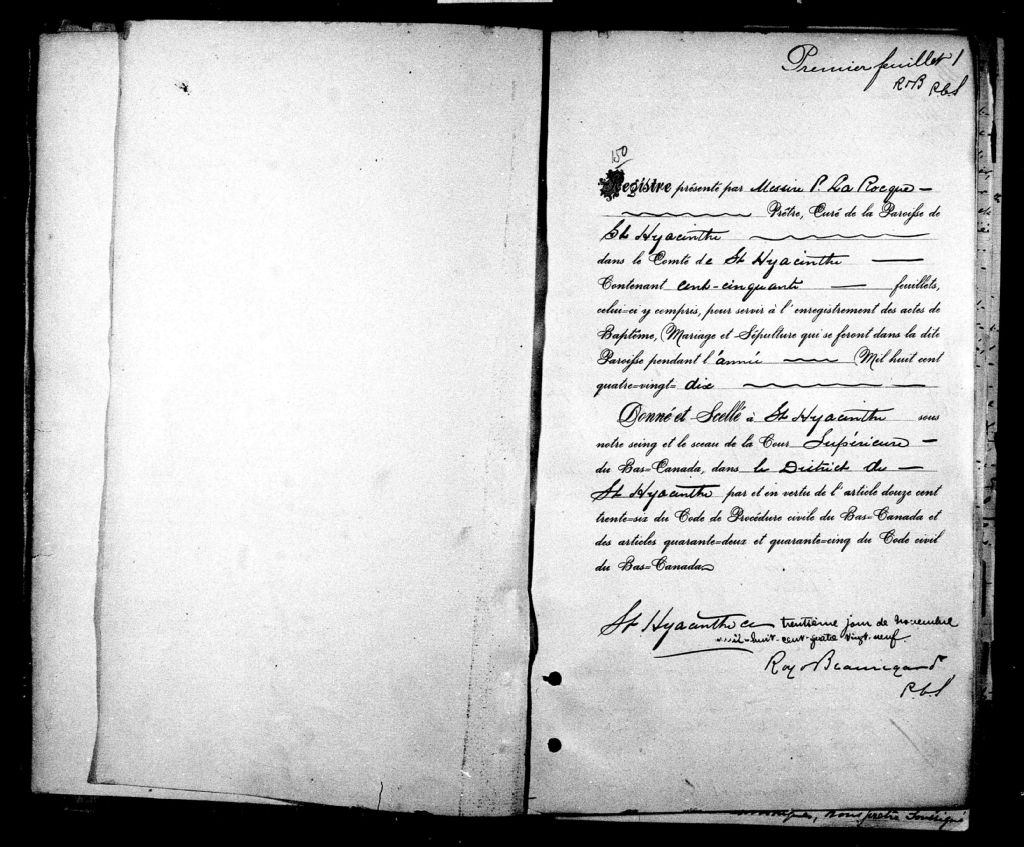 Premier feuillet 1
R&B P.C.S
150
Registre présenté par Messire P. La Rocque
Prêtre, Curé de la Paroisse de
St Hyacinthe
dans le Comté de St Hyacinthe
Contenant cent-cinquante feuillets,
celui=ci y compris, pour servir à l'enregistrement des actes de
Baptême, Mariage et Sépulture qui se feront dans la dite
Paroisse pendant l'année Mil huit cent
quatre=vingt= dix
Donné et Scellé à St Hyacinthe sous
notre seing et le sceau de la Cour Supérieure
du Bas=Canada, dans le District de
St Hyacinthe par et en vertu de l'article douze cent
trente=six du Code de Procédure civile du Bas=Canada et
des articles quarante=deux et quarante=cinq du Code civil
du Bas=Canada
St Hyacinthe ce trentième jour de novembre
mil-huit-cent-quatre vingt-neuf.
Roy & Beauregard
P.C.S
nous prêtre soussigné